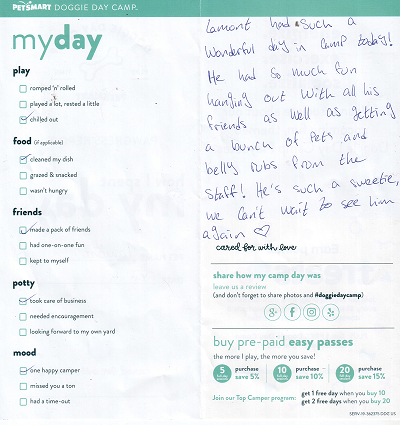 PETSMART DOGGIE DAY CAMP.
myday
play
romped 'n' rolled
played a lot, rested a little
chilled out
food (if applicable)
cleaned my dish
grazed & snacked
wasn't hungry
friends
made a pack of friends
had one-on-one fun
kept to myself
potty
took care of business
needed encouragement
looking forward to my own yard
mood
one happy camper
missed you a ton
had a time-out
Lamont had such a
Wonderful day in camp today!
He had so much fun
hanging out with all his
friends as well as getting
a bunch of Pets and
belly rubs from the
Staff! He's such a sweetie,
we can't wait to see him
again ♡
cared for with love
share how my camp day was
leave us a review
(and don't forget to share photos and #doggiedaycamp)
g+ f
buy pre-paid easy passes
the more I play, the more you save!
5 full-day sessions purchase save 5%
10 full-day sessions purchase save 10%
20 full-day sessions purchase save 15%
Join our Top Camper program: get 1 free day when you buy 10
get 2 free days when you buy 20
SERV-19-362375 DDC US